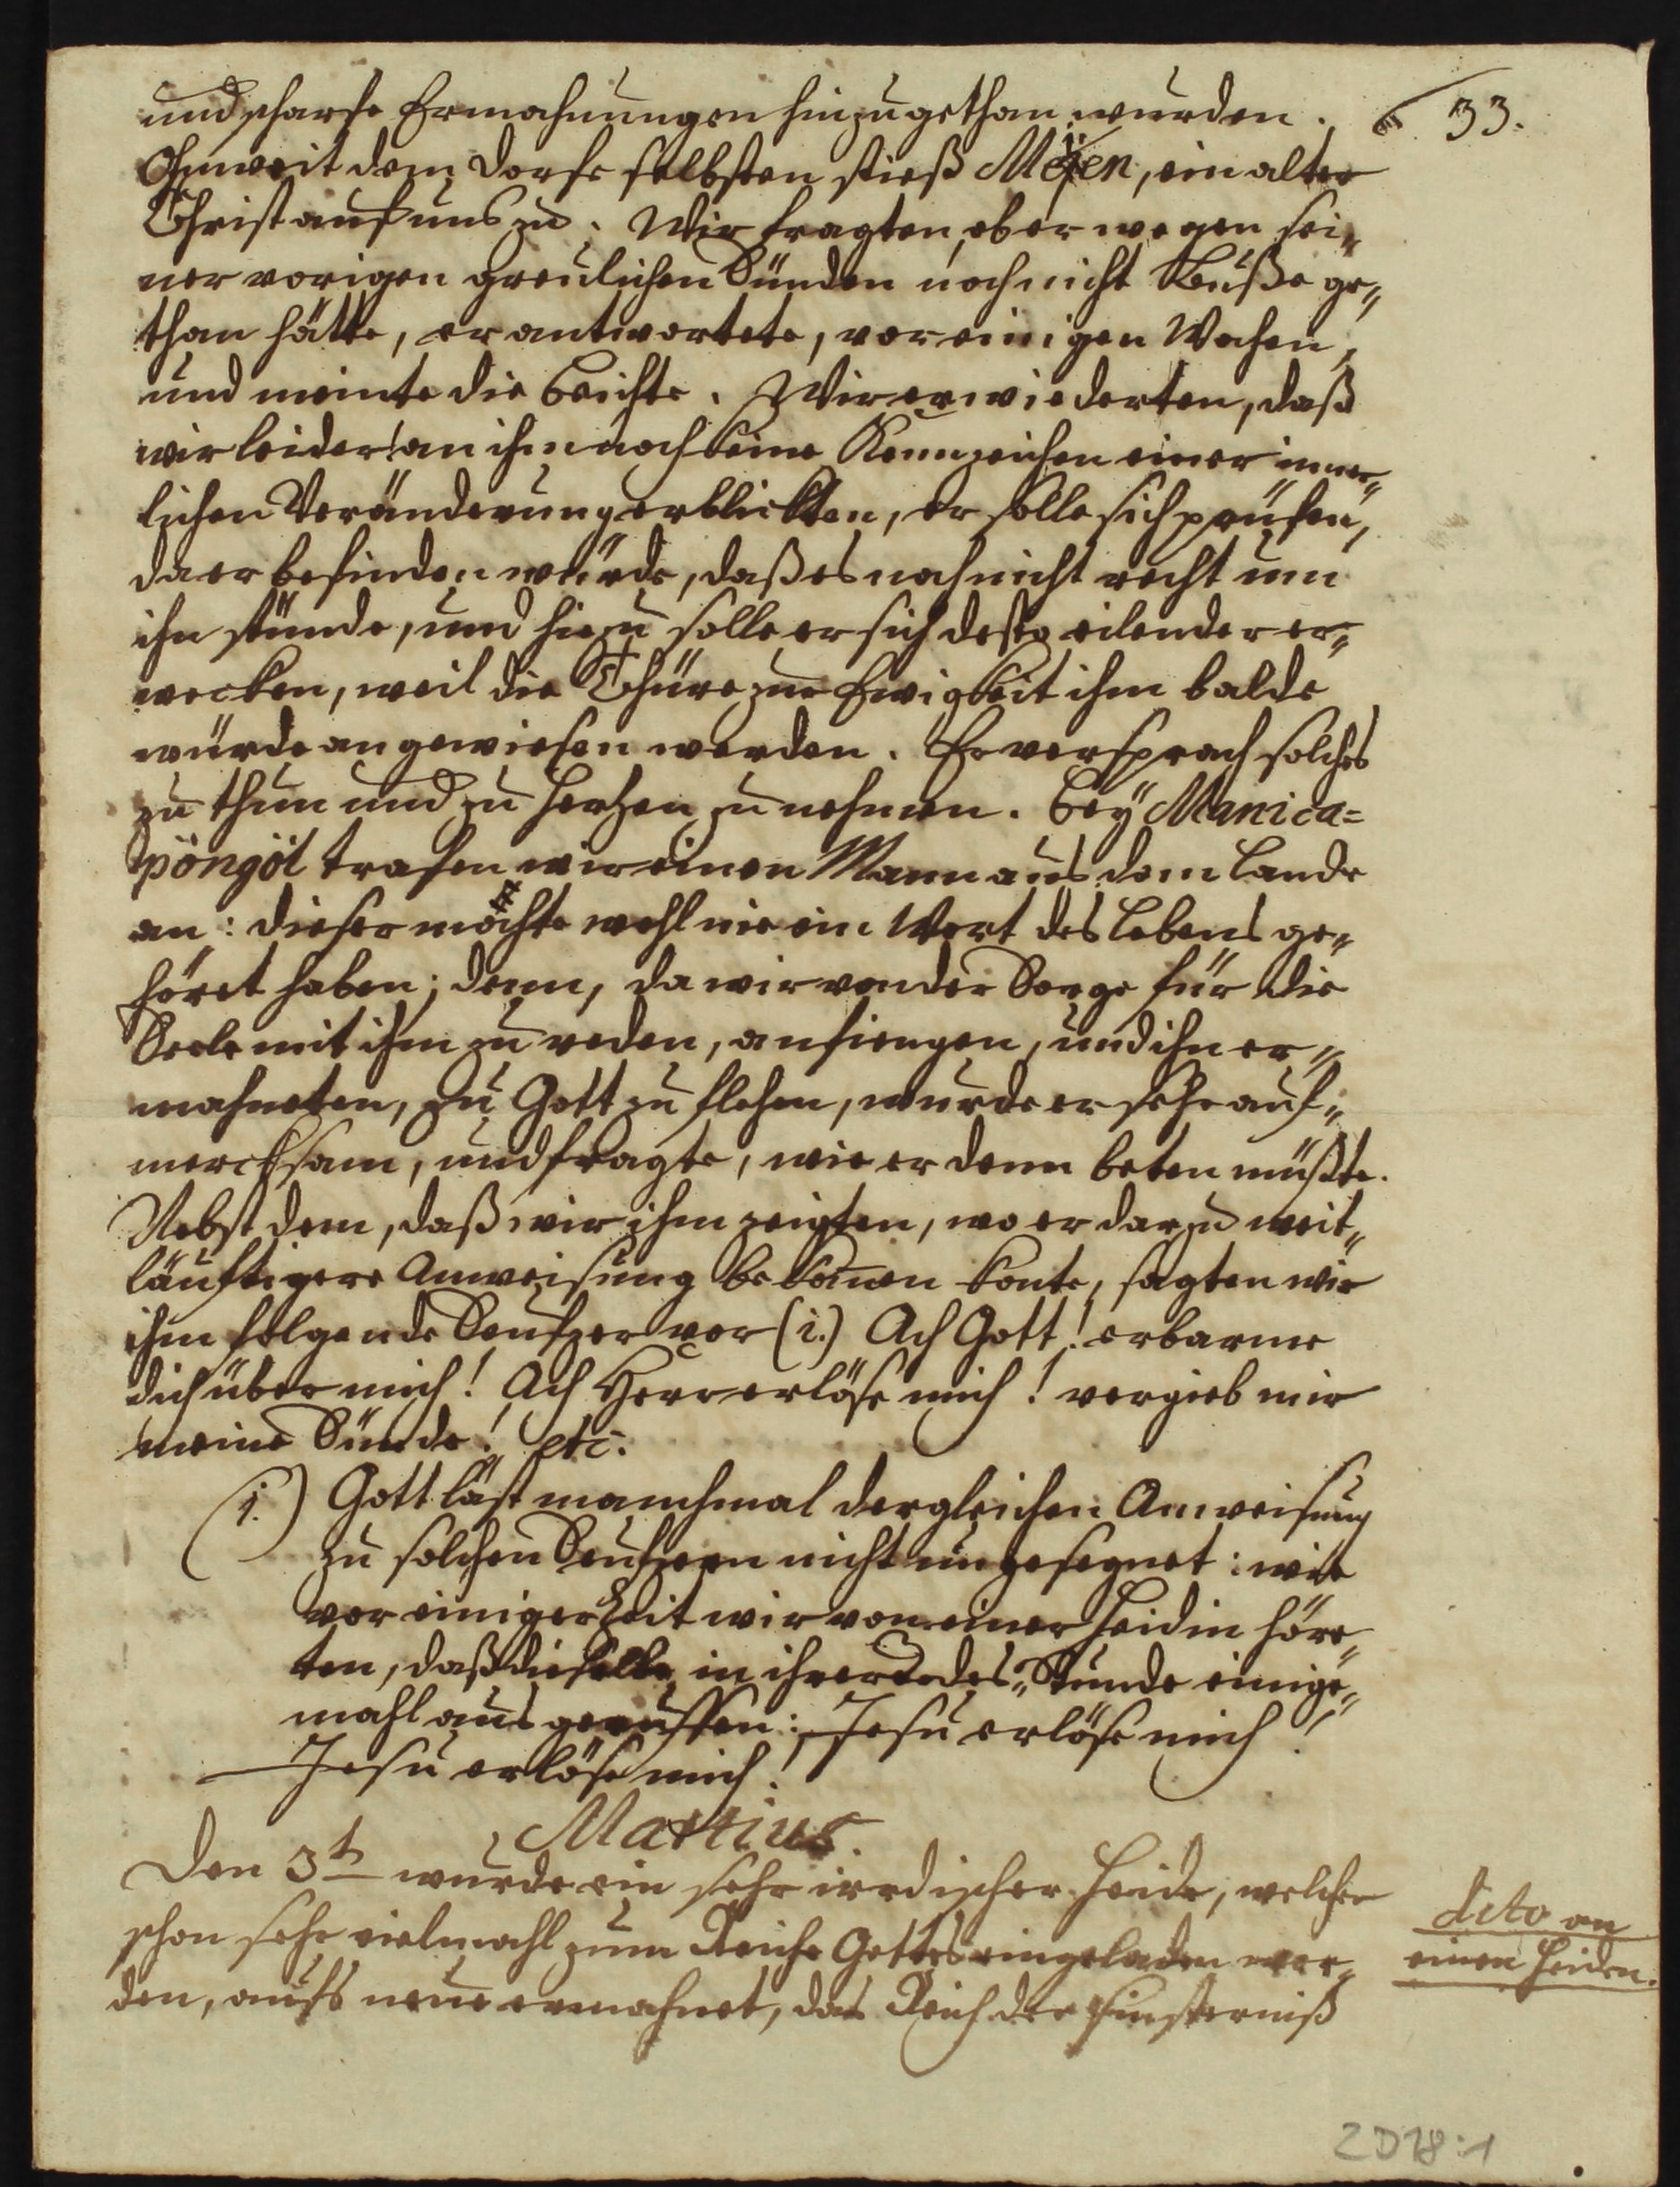 33.
und scharfe Ermahnungen hinzugethan wurden.
Ohnweit dem Dorfe selbsten stieß, ein alter
Christ auf uns zu. Wir fragten, ob er wegen sei„
ner vorigen greulichen Sünden noch nicht Buße ge„
than hätte, er antwortete, vor einigen Wochen,
und meinte die Beichte. Wir erwiederten, daß
wir leider! an ihm noch keine Kennzeichen einer inner„
lichen Veränderung erblickten, er solle sich prüfen,
da er befinden würde, daß es noch nicht recht um
ihn stünde, und hiezu solle er sich desto eilender er„
wecken, weil die Thüre zur Ewigkeit ihm balde
würde angewiesen werden. Er versprach solches
zu thun und zu Herzen zu nehmen. Bey Manica=
pöngöl trafen wir einen Mann aus dem Lande
an: dieser möchte wohl nie ein Wort des Lebens ge„
höret haben; denn, da wir von der Sorge für die
Seele mit ihm zu reden, anfiengen, und ihn er„
mahneten, zu Gott zu flehen, wurde er sehr auf„
mercksam, und fragte, wie er denn beten müßte.
Nebst dem, daß wir ihm zeigten, wo er darzu weit„
läuftigere Anweisung bekommen konte, sagten wir
ihm folgende Seufzer vor (i.) Ach Gott! erbarme
dich über mich! Ach Herr erlöse mich! vergieb mir
meine Sünde! etc.
(i.) Gott läst manchmal dergleichen Anweisung
zu solchen Seufzern nicht ungesegnet: wie
vor einiger Zeit wir von einer Heidin höre„
ten, daß dieselbe in ihrer Todes„Stunde einige„
mahl ausgeruffen: Jesu erlöse mich!
Jesu erlöse mich!
Martius
Den 3t wurde ein sehr irrdischer Heide, welcher
schon sehr vielmahl zum Reiche Gottes eingeladen wor„
den, aufs neue ermahnet, das Reich der Finsterniß
dito an
einen Heiden.
2D18:1